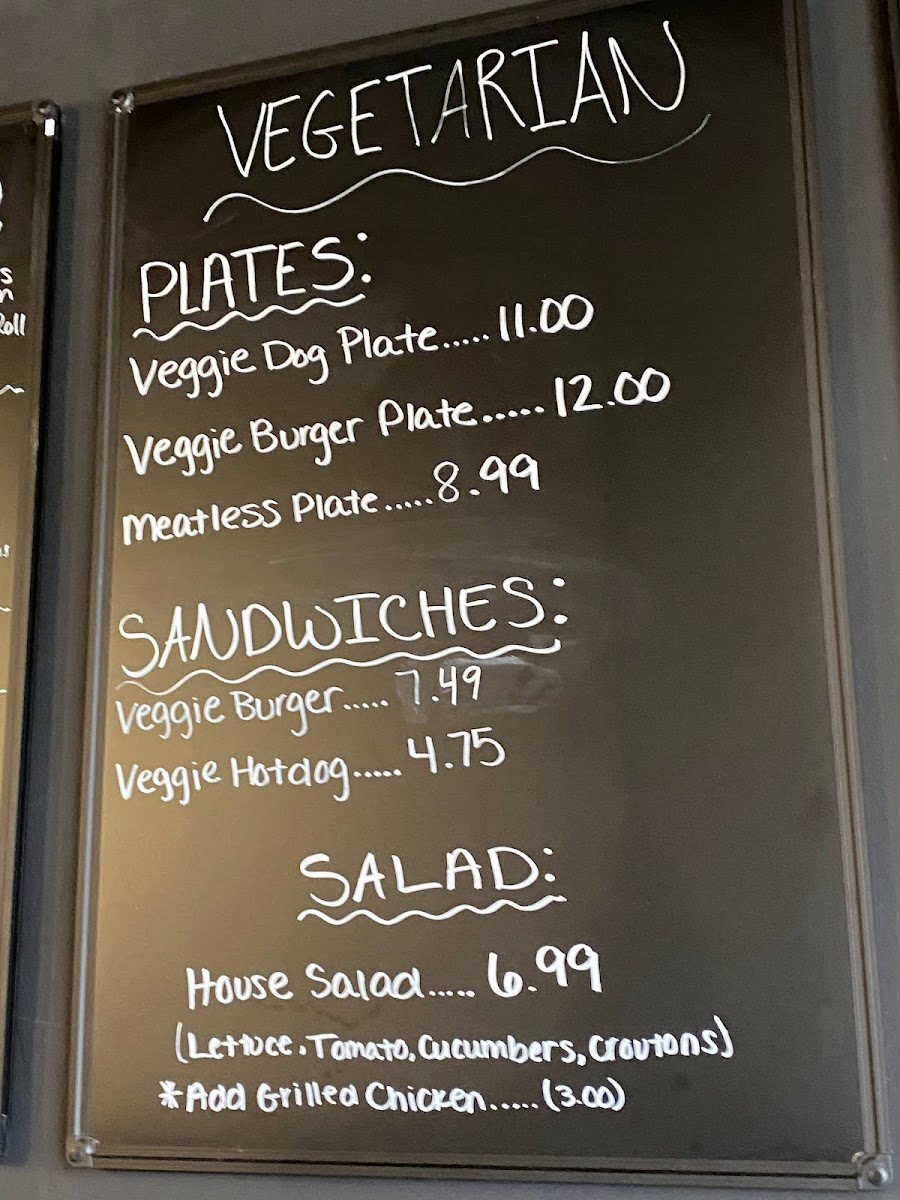 VEGETARIAN
PLATES:
Veggie Dog Plate..... 11.00
Veggie Burger Plate..... 12.00
Meatless Plate.....8.99
SANDWICHES:
Veggie Burger..... 7.49
Veggie Hotdog..... 4.75
SALAD:
House Salad..... 6.99
(Lettuce, Tomato, Cucumbers, Croutons)
*Add Grilled Chicken.....(3.00)
Roll